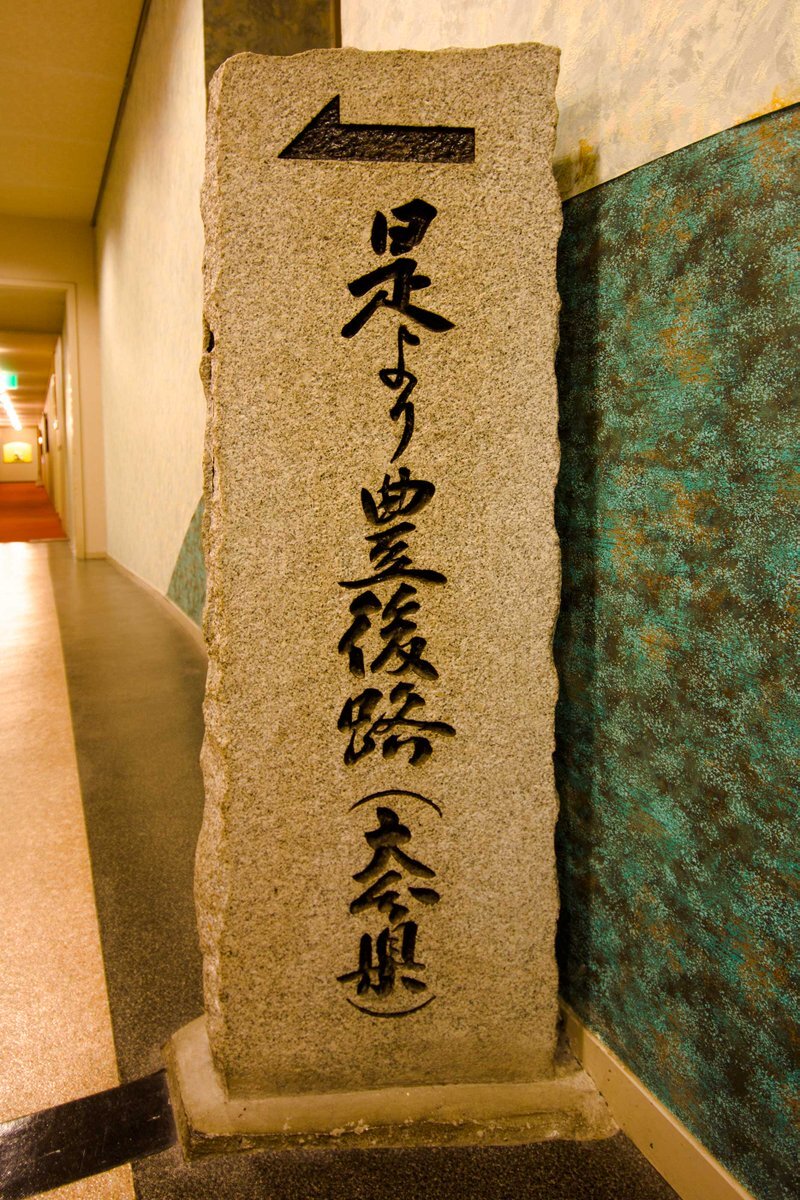 是より豊後路(大分県)